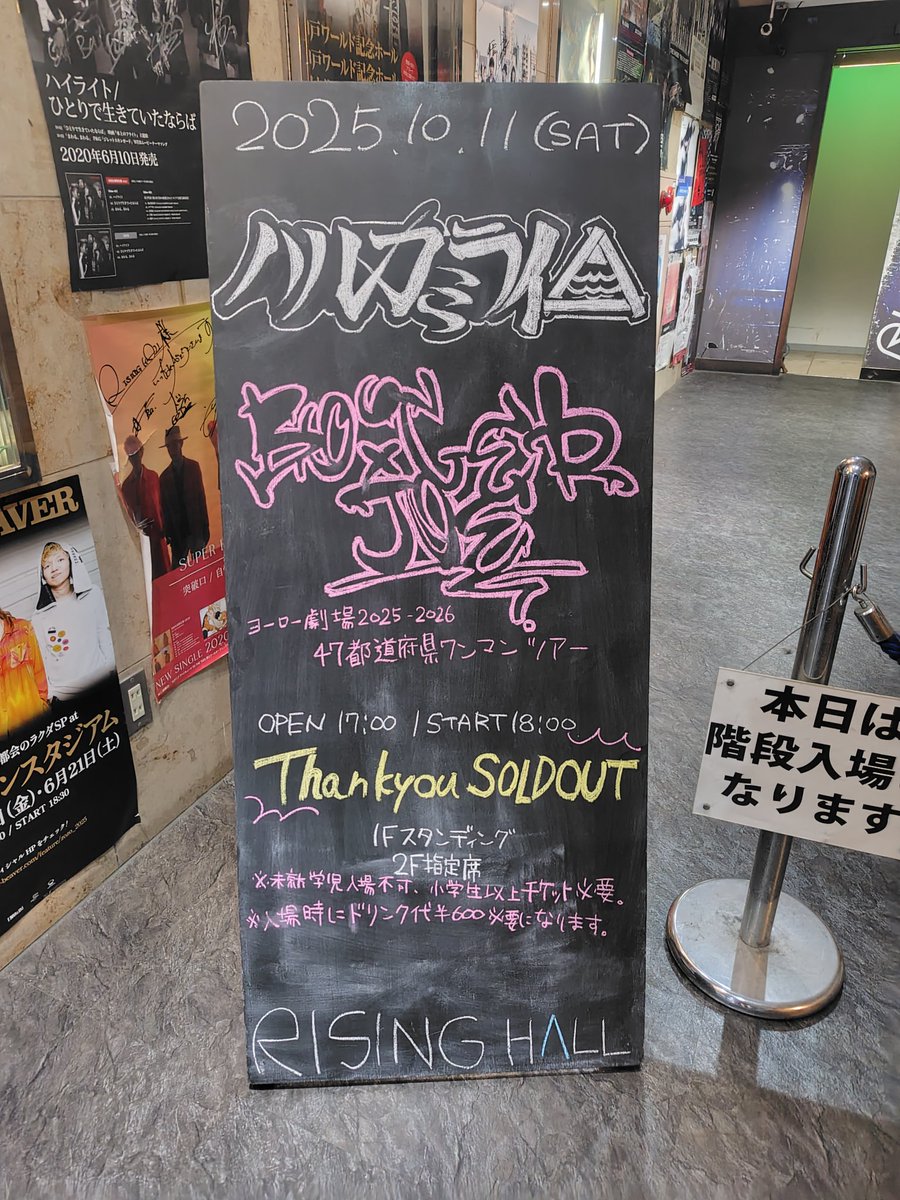 2025.10.11(SAT)
ハルカミライ
BOILER
JOE
ヨーロー劇場2025-2026
47都道府県ワンマンツアー
OPEN 17:00 / START 18:00
Thankyou SOLDOUT
1Fスタンディング
2F指定席
※未就学児入場不可、小学生以上チケット必要。
※入場時にドリンク代¥600必要になります。
RISING HALL
ハイライト/
ひとりで生きていたならば
2020年6月10日発売
戸ワールド記念ホール
戸ワールド記念ホール
RISING HALL
SUPER
突破口 / 自
NEW SINGLE 2020
AVER
都会のラクダSP at
ンスタジアム
(金)・6月21日(土)
/ START 18:30
ィシャルHPをチェック!
本日は
階段入場
なります